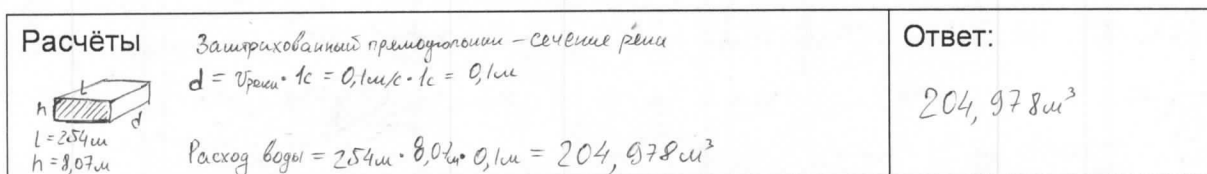 Расчёты
Заштрихованный прямоугольник – сечение реки
d = Vреки · 1с = 0,1м/с · 1с = 0,1м
l
h
d
l = 254м
h = 8,07м
Расход воды = 254м · 8,07м · 0,1м = 204,978м³
Ответ:
204,978м³